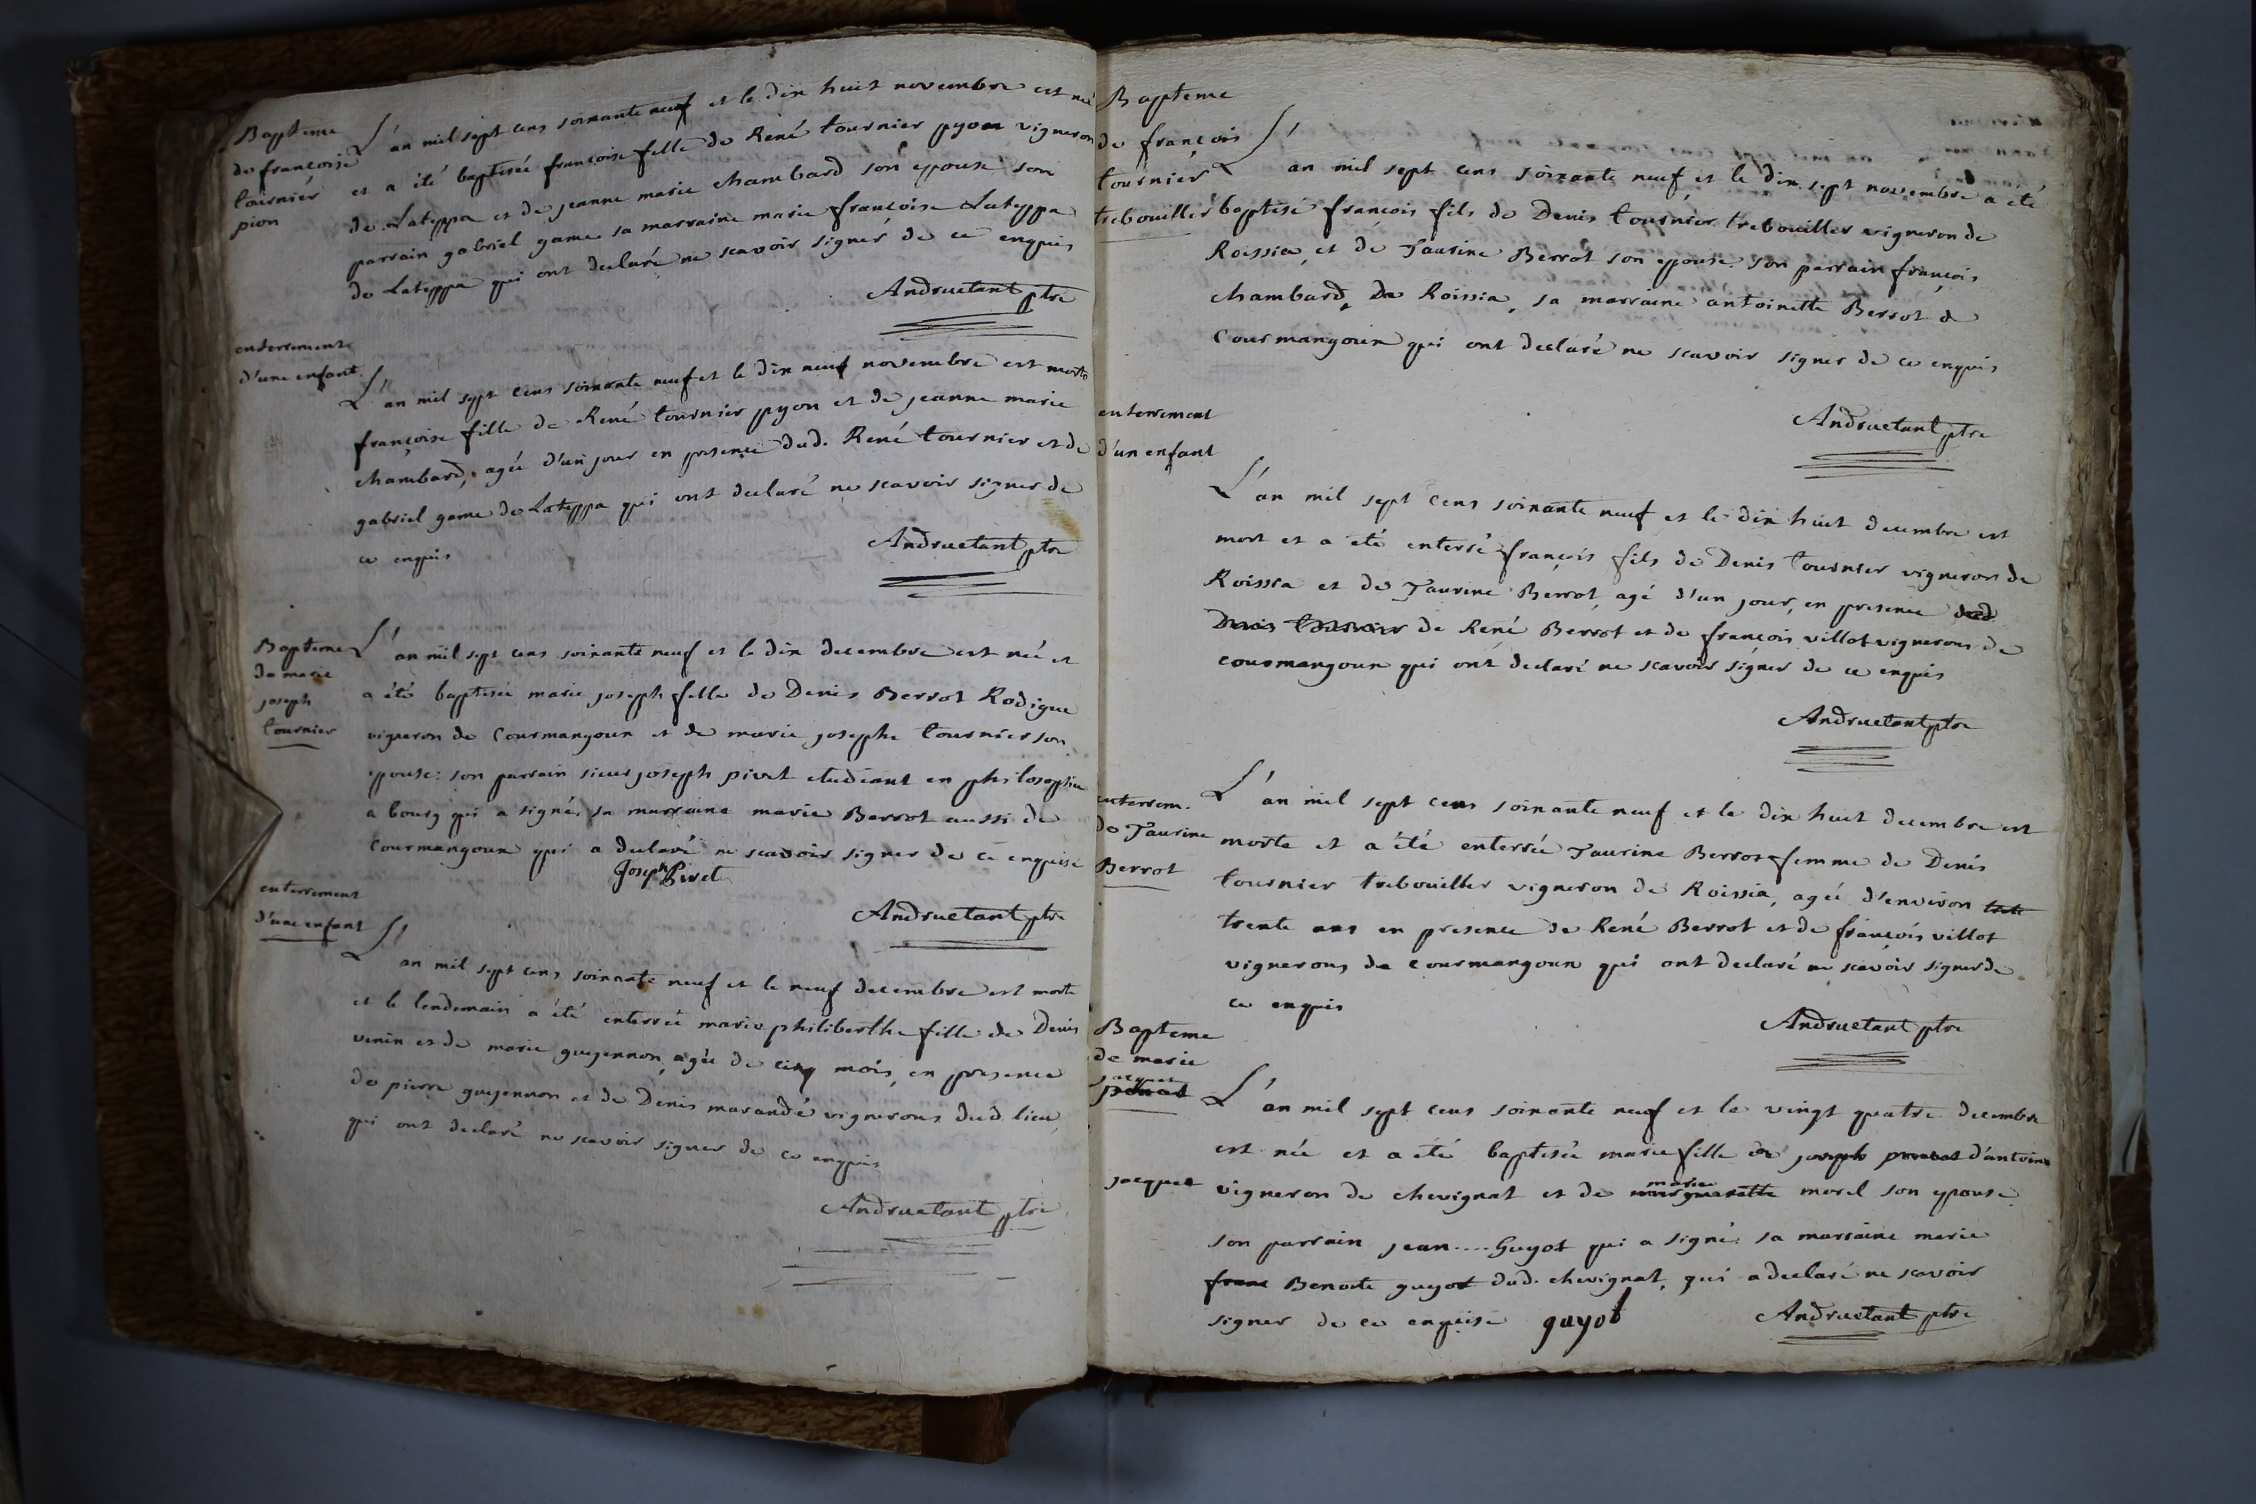 Bapteme
de françoise
tournier
pion
L'an mil sept cens soixante neuf et le dix huit novembre est née
et a été baptisée françoise fille de René tournier pyon vigneron
de Lateppa et de jeanne marie chambard son epouse son
parrain gabriel game sa marraine marie françoise Lateppa
de Lateppa qui ont declaré ne scavoir signer de ce enquis
Andruetant ptre
enterrement
d'une enfant
L'an mil sept cens soixante neuf et le dix neuf novembre est morte
françoise fille de René tournier pyon et de jeanne marie
chambard, agée d'un jour en presence dud. René tournier et de
gabriel game de Lateppa qui ont declaré ne scavoir signer de
ce enquis
Andruetant ptre
Bapteme
de marie
joseph
tournier
L'an mil sept cens soixante neuf et le dix decembre est née et
a été baptisée marie joseph fille de Denis Berrot Rodigue
vigneron de Courmangoux et de marie josephe tournier son
epouse: son parrain sieur joseph pivet etudiant en philosophie
a bourg qui a signé, sa marraine marie Berrot aussi de
Courmangoux qui a declaré ne scavoir signer de ce enquise
Joseph Pivet
Andruetant ptre
enterrement
d'une enfant
L'an mil sept cens soixante neuf et le neuf decembre est morte
et le lendemain a été enterrée marie philiberthe fille de Denis
venin et de marie guyennon, agée de cinq mois, en presence
de pierre guyennon et de Denis marandé vignerons dud. lieu
qui ont declaré ne scavoir signer de ce enquis
Andruetant ptre
Bapteme
de françois
tournier
trebouiller
L'an mil sept cens soixante neuf et le dix sept novembre a été
baptisé françois fils de Denis tournier trebouiller vigneron de
Roissia, et de Taurine Berrot son epouse. son parrain françois
chambard, De Roissia, sa marraine antoinette Berrot de
Courmangoux qui ont declaré ne scavoir signer de ce enquis
Andruetant ptre
enterrement
d'un enfant
L'an mil sept cens soixante neuf et le dix huit decembre est
mort et a été enterré françois fils de Denis tournier vigneron de
Roissia et de Taurine Berrot, agé d'un jour, en presence dud.
Denis tournier de René Berrot et de françois villot vignerons de
courmangoux qui ont declaré ne scavoir signer de ce enquis
Andruetant ptre
enterrem.
de Taurine
Berrot
L'an mil sept cens soixante neuf et le dix huit decembre est
morte et a été enterrée Taurine Berrot femme de Denis
tournier trebouiller vigneron de Roissia, agée d'environ
trente ans en presence de René Berrot et de françois villot
vignerons de courmangoux qui ont declaré ne scavoir signer de
ce enquis
Andruetant ptre
Bapteme
de marie
jacquet
L'an mil sept cens soixante neuf et le vingt quatre decembre
est née et a été baptisée marie fille de joseph d'antoine
jacquet
vigneron de chevignat et de marguerite marie morel son epouse
son parrain jean.... Guyot qui a signé: sa marraine marie
franc Benoite guyot dud. chevignat, qui a declaré ne scavoir
signer de ce enquise guyot
Andruetant ptre